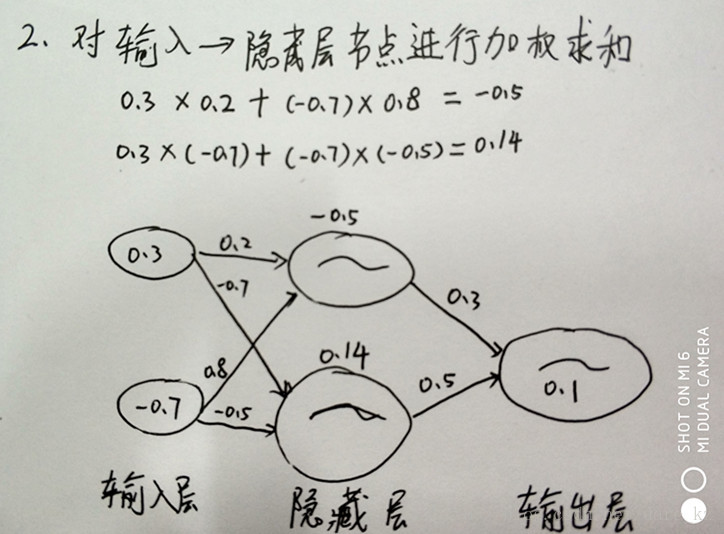 2. 对输入→隐藏层节点进行加权求和
0.3 × 0.2 + (-0.7) × 0.8 = -0.5
0.3 × (-0.7) + (-0.7) × (-0.5) = 0.14
-0.5
0.3
0.2
-0.7
0.3
0.8
0.14
0.5
0.1
-0.7
-0.5
输入层
隐藏层
输出层
SHOT ON MI 6
MI DUAL CAMERA